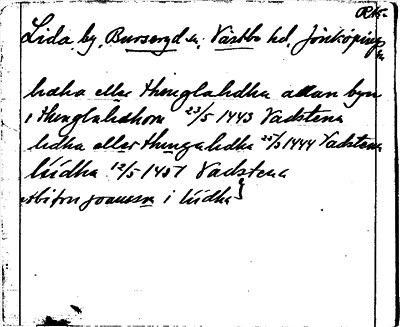 Lida by, Burseryd sn, Västbo hd, Jönköpings
lidha eller thinglalidha allan byn
i thinglalidhom 23/5 1443 Vadstena
lidha eller thingalidha 25/3 1444 Vadstena
liidha 12/5 1457 Vadstena
joansson i liidha